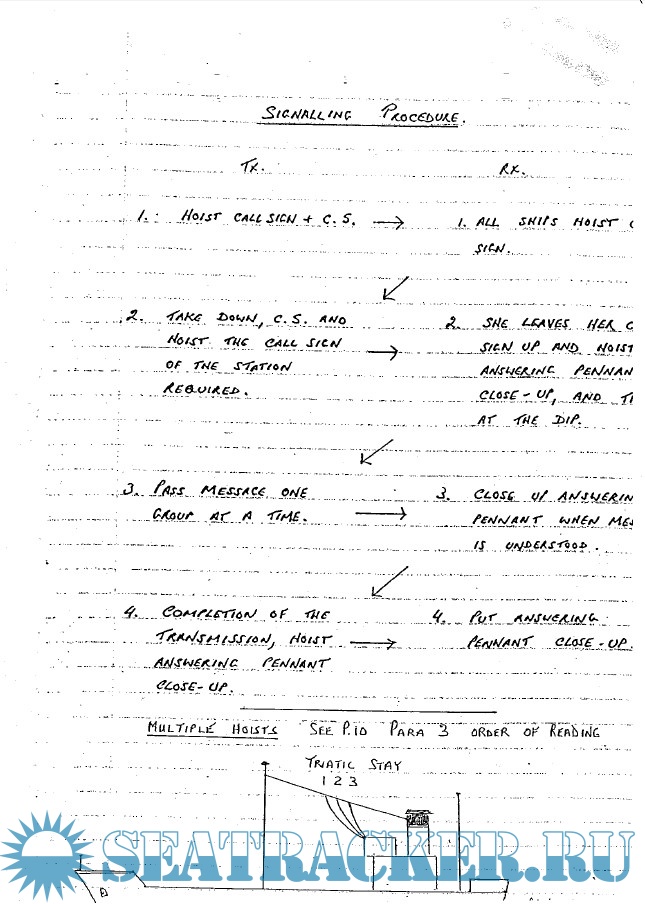 SIGNALLING PROCEDURE.
TX. RX.
1.: HOIST CALL SIGN + C.S. → 1. ALL SHIPS HOIST
SIGN.
2. TAKE DOWN, C.S. AND 2. SHE LEAVES HER
HOIST THE CALL SIGN → SIGN UP AND HOIST
OF THE STATION ANSWERING PENNAN
REQUIRED. CLOSE-UP, AND
AT THE DIP.
3. PASS MESSAGE ONE 3. CLOSE UP ANSWERIN
GROUP AT A TIME. → PENNANT WHEN MES
IS UNDERSTOOD.
4. COMPLETION OF THE 4. PUT ANSWERING
TRANSMISSION, HOIST → PENNANT CLOSE-UP.
ANSWERING PENNANT
CLOSE-UP.
MULTIPLE HOISTS SEE P.10 PARA 3 ORDER OF READING
TRIATIC STAY
1 2 3
SEATRACKER.RU